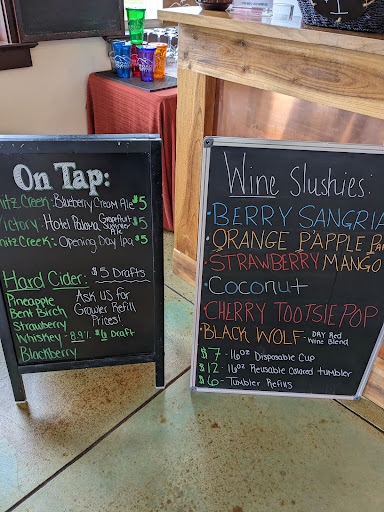 On Tap:
nitz Creek: Blueberry Cream Ale $5
Victory: Hotel Paloma Grapefruit Summer Ale $5
nitz Creek: Opening Day Ipa $5
Hard Cider: $5 Drafts
Pineapple
Bent Birch
Strawberry
Whiskey - 8.9% $6 Draft
Blackberry
Ask us for
Growler Refill
Prices!
Wine Slushies:
BERRY SANGRIA
ORANGE P'APPLE
STRAWBERRY MANGO
Coconut
CHERRY TOOTSIE POP
BLACK WOLF - DRY Red Wine Blend
$7 - 16oz Disposable Cup
$12 - 16oz Reusable Colored tumbler
$6 - Tumbler Refills